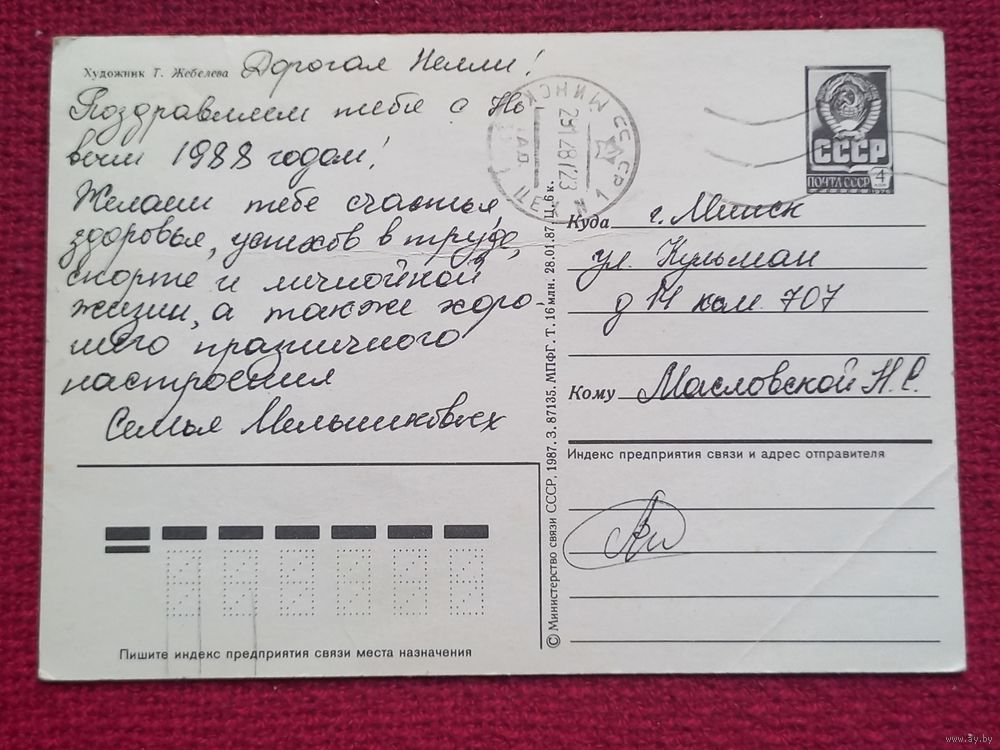 Художник Т. Жебелева
Дорогая Нелли!
Поздравляем тебя с Но
вым 1988 годом!
Желаем тебе счастья,
здоровья, успехов в труде,
спорте и личной
жизни, а также хоро
шего празничного
настроения
Семья Мельниковых
МИНСК
СССР
291287123
СССР
ПОЧТА СССР
4
1976
Куда г. Минск
ул. Кульман
д 14 ком. 707
Кому Масловской Н.С.
Индекс предприятия связи и адрес отправителя
© Министерство связи СССР, 1987. З. 87135. МПФГ. Т. 16 млн. 28.01.87. Ц. 6 к.
Пишите индекс предприятия связи места назначения
www.ay.by